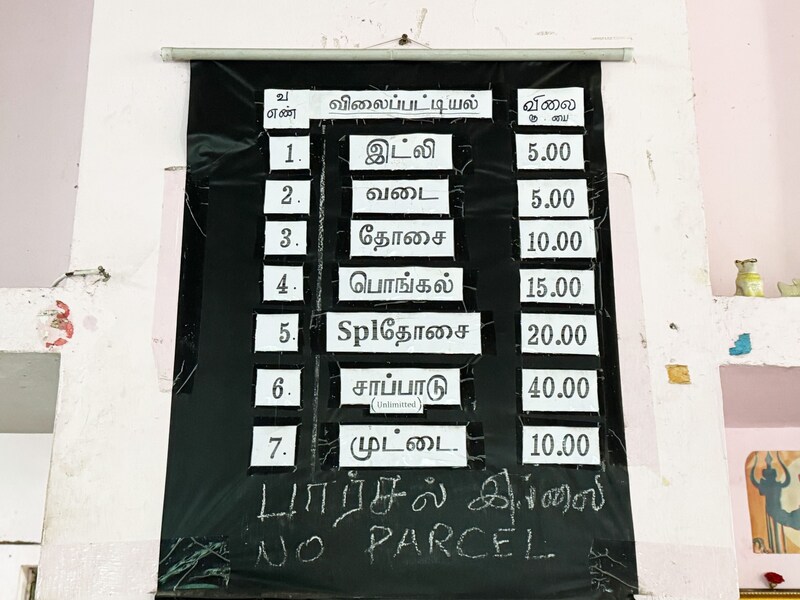 வ எண் விலைப்பட்டியல் விலை ரூ . பை
1. இட்லி 5.00
2. வடை 5.00
3. தோசை 10.00
4. பொங்கல் 15.00
5. Splதோசை 20.00
6. சாப்பாடு 40.00
(Unlimitted)
7. முட்டை. 10.00
பார்சல் இல்லை
NO PARCEL